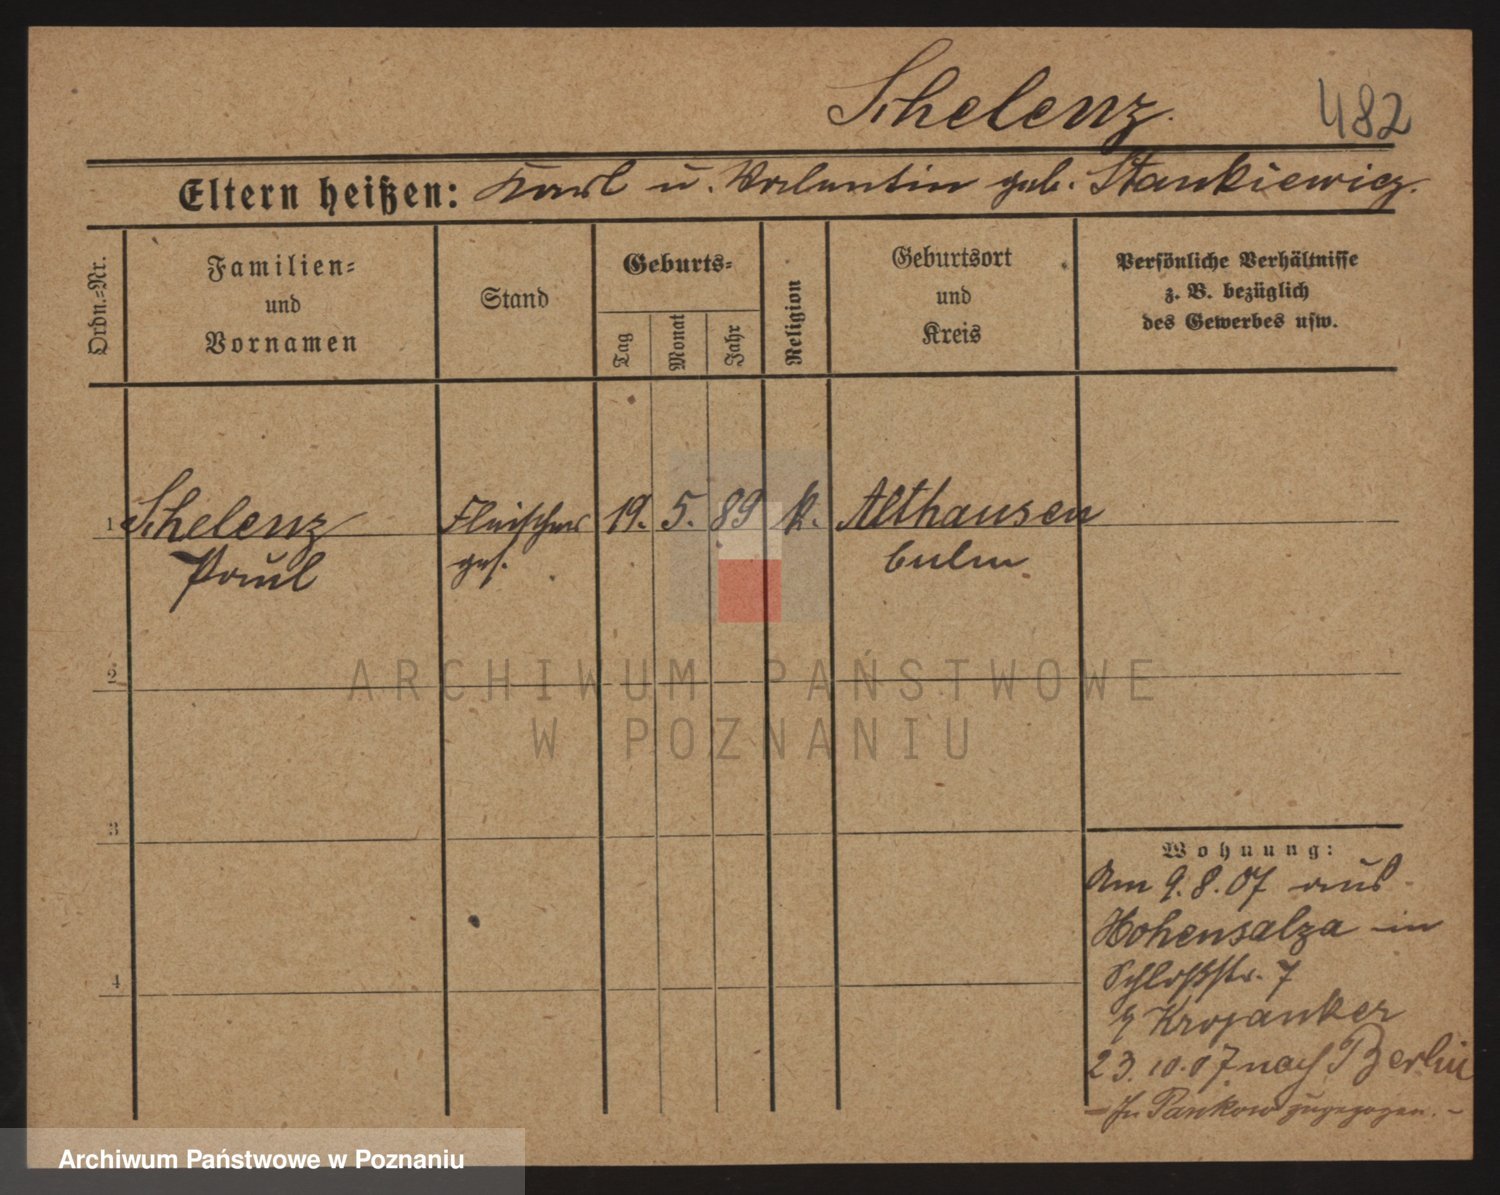 Schelenz. 482
Eltern heißen: Karl u. Valentin geb. Stankiewicz.
Ordn.=Nr.
Familien=
und
Vornamen
Stand
Geburts=
Tag
Monat
Jahr
Religion
Geburtsort
und
Kreis
Persönliche Verhältnisse
z. B. bezüglich
des Gewerbes usw.
1 Schelenz Fleischer 19. 5. 89 k. Althausen
Paul ges. Culm
2
3
4
Wohnung:
Am 9.8.07 aus
Hohensalza in
Schloßstr. 7
Krojanker
23.10.07 nach Berlin
– In Pankow zugezogen. –
ARCHIWUM PAŃSTWOWE
W POZNANIU
Archiwum Państwowe w Poznaniu